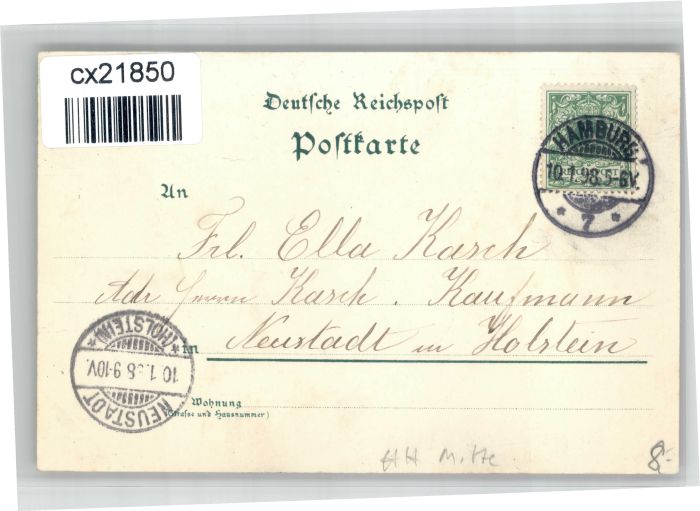 cx21850
Deutsche Reichspost
Postkarte
HAMBURG
10.1.98.5-6V.
* 7 *
An
Frl. Ella Karsch
Adr Herrn Karsch. Kaufmann
in Neustadt in Holstein
NEUSTADT
10.1.98 9-10V.
*(HOLSTEIN)*
Wohnung
(Straße und Hausnummer)
HH Mitte
8.-